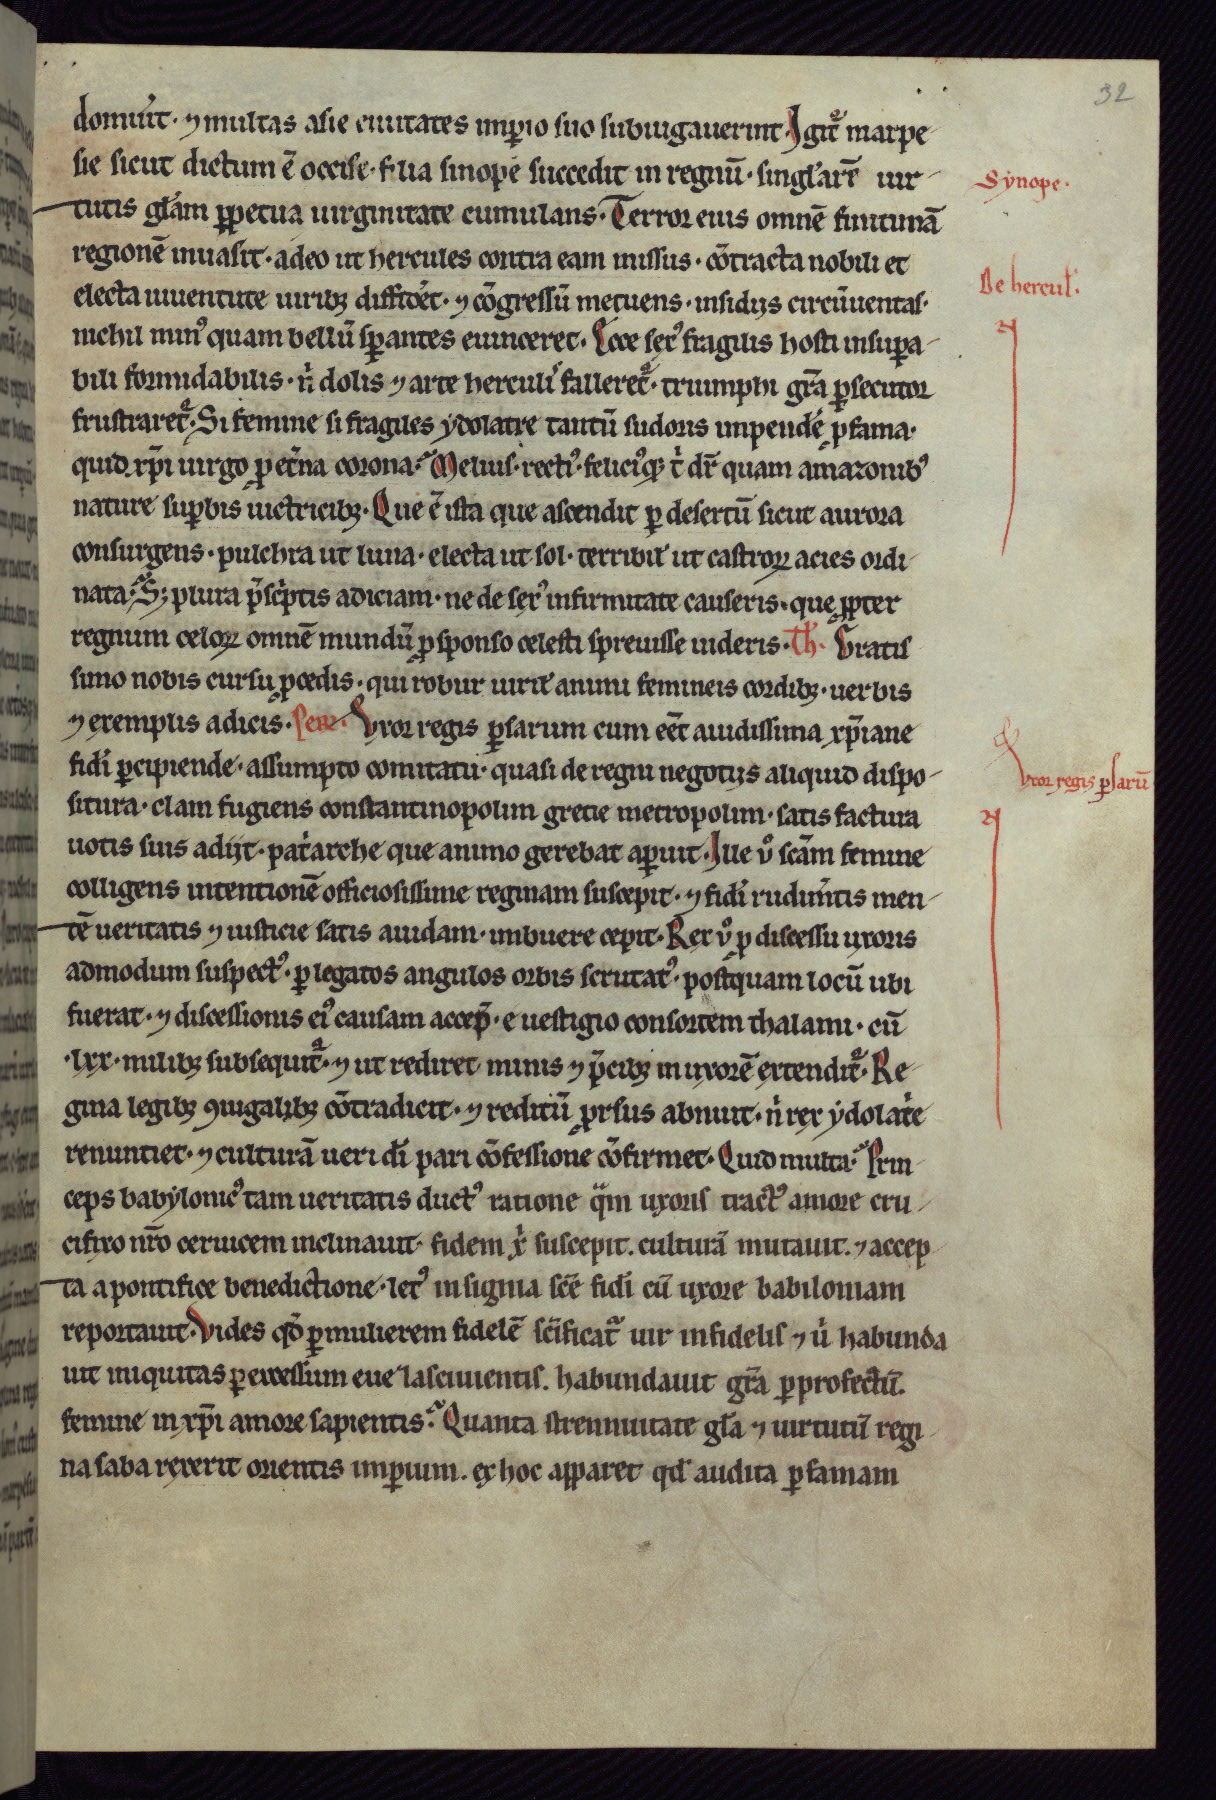 32
domuer̄t · ⁊ multas asie ciuitates imꝑio suo subiugauerint · Igit᷑ marpe-
sie sicut dictum ē occise · filia sinope succedit in regnū · singl'arē uir-
Synope ·
tutis gl'am ꝑpetua uirginitate cumulans · Terror eius omnē finitimā
regionē inuasit · adeo ut hercules contra eam missus · cōtracta nobili et
De hercul' ·
electa iuuentute uiribꝫ diffid'et · ⁊ cōgressū metuens · insidijs circūuentas ·
nichil minꝰ quam bellū sꝑantes euinceret · Ecce sexꝰ fragilis hosti insuꝑa-
bili formidabilis · n̄ dolis ⁊ arte herculi falleret᷑ · triumphi gr̄a ꝑsecutor
frustraret᷑ · Si femine si fragiles ydolatre tantū sudoris impendē ꝓ fama ·
quid xp̄i uirgo ꝓ et̄na corona · Melius · rectiꝰ · feliciꝰqꝫ t' dr̄ quam amazonibꝰ
nature suꝑbis uictricibꝫ · Que ē ista que ascendit ꝑ desertū sicut aurora
consurgens · pulchra ut luna · electa ut sol · terribil' ut castroꝝ acies ordi-
nata · Sꝫ plura p̄sc'ptis adiciam · ne de sexꝰ infirmitate causeris · que ꝓpter
regnum celoꝝ omnē mundū ꝓ sponso celesti spreuisse uideris · Th · Gratis-
simo nobis cursu ꝓcedis · qui robur uiril' animi femineis cordibꝫ · uerbis
⁊ exemplis adicis · Per · Uxor regis ꝑsarum cum eēt auidissima xp̄iane
fidei ꝑcipiende · assumpto comitatu · quasi de regni negotijs aliquid dispo-
Uxor regis ꝑsarū
situra · clam fugiens constantinopolim grecie metropolim · satis factura
uotis suis adijt · pat'arche que animo gerebat aꝑuit · Ille ů scām femine
colligens intentionē officiosissime reginam suscepit · ⁊ fidei rudim̄tis men-
tē ueritatis ⁊ iusticie satis auidam · imbuere cepit · Rex ů ꝓ discessu uxoris
admodum suspectꝰ · ꝑ legatos angulos orbis scrutatꝰ · postquam locū ubi
fuerat · ⁊ discessionis eiꝰ causam accep̄ · e uestigio consortem thalami · cū
· lxx · milibꝫ subsequit᷑ · ⁊ ut rediret minis ⁊ p̄cibꝫ in uxorē extendit᷑ · Re-
gina legibꝫ ꝯiugalibꝫ cōtradicit · ⁊ reditū ꝓrsus abnuit · n' rex ydolat'e
renuntiet · ⁊ culturā ueri dī pari cōfessione cōfirmet · Quid multa · Prin-
ceps babylonicꝰ tam ueritatis ductꝰ ratione qᷓm uxoris tractꝰ amore cru-
cifixo nr̄o ceruicem inclinauit · fidem x' suscepit . culturā mutauit . ⁊ accep-
ta a pontifice benedictione · letꝰ insignia scē fidei cū uxore babiloniam
reportauit · Vides qd̄ ꝑ mulierem fidelē sc̄ificat᷑ uir infidelis ⁊ u' habunda
uit iniquitas ꝑ excessum eue lasciuientis . habundauit gr̄a ꝑ profectū .
femine in xp̄i amore sapientis · Quanta strennuitate gl'a ⁊ uirtutū regi-
na saba rexerit orientis imꝑium . ex hoc apparet qd' audita ꝑ famam